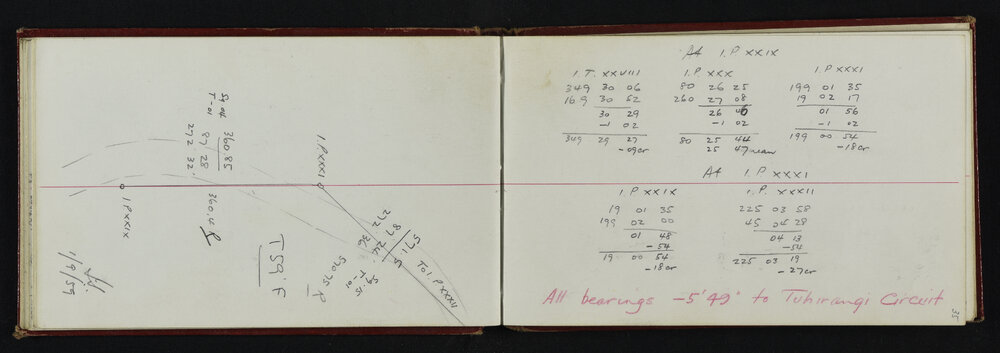 I.P XXIX
1/9/59
59.04
T-.01
272 32
87 28
360.85
360.4
T59 F
I.P XXXI
272 36
87 24
571.5
59.15
T-.01
570.75
To I.P XXXII
At I.P XXIX
I.T. XXVIII
349 30 06
169 30 52
30 29
-1 02
349 29 27
-09cr
I.P XXX
80 26 25
260 27 08
26 46
-1 02
80 25 44
25 47 mean
I.P XXXI
199 01 35
19 02 17
01 56
-1 02
199 00 54
-18cr
At I.P XXXI
I.P XXIX
19 01 35
199 02 00
01 48
-54
19 00 54
-18cr
I.P. XXXII
225 03 58
45 04 28
04 13
-54
225 03 19
-27cr
All bearings -5'49" to Tuhirangi Circuit
35